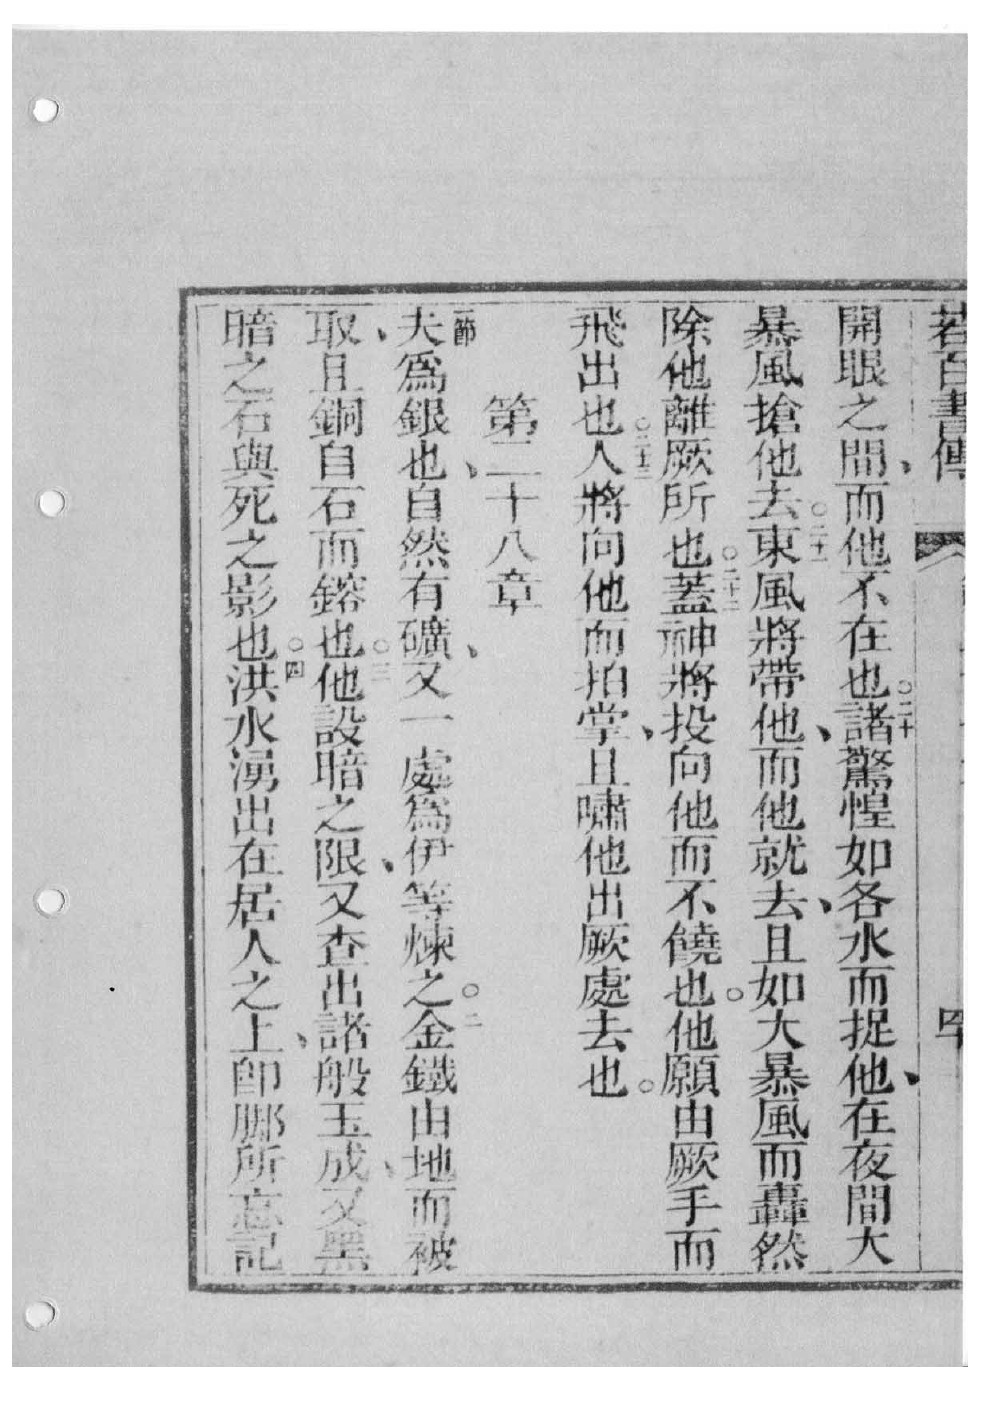 若百書傳
開眼之間、而他不在也。二十諸驚惶如各水而捉他、在夜間大
暴風搶他去。二十一東風將帶他、而他就去、且如大暴風而轟然
除他離厥所也。二十二蓋神將投向他而不饒也。他願由厥手而
飛出也。二十三人將向他而拍掌、且嘯他出厥處去也。
第二十八章
一節夫爲銀也、自然有礦、又一處爲伊等煉之。二金鐵由地而被
取、且銅自石而鎔也。三他設暗之限、又查出諸般玉成、又黑
暗之石與死之影也。四洪水湧出在居人之上、卽腳所忘記